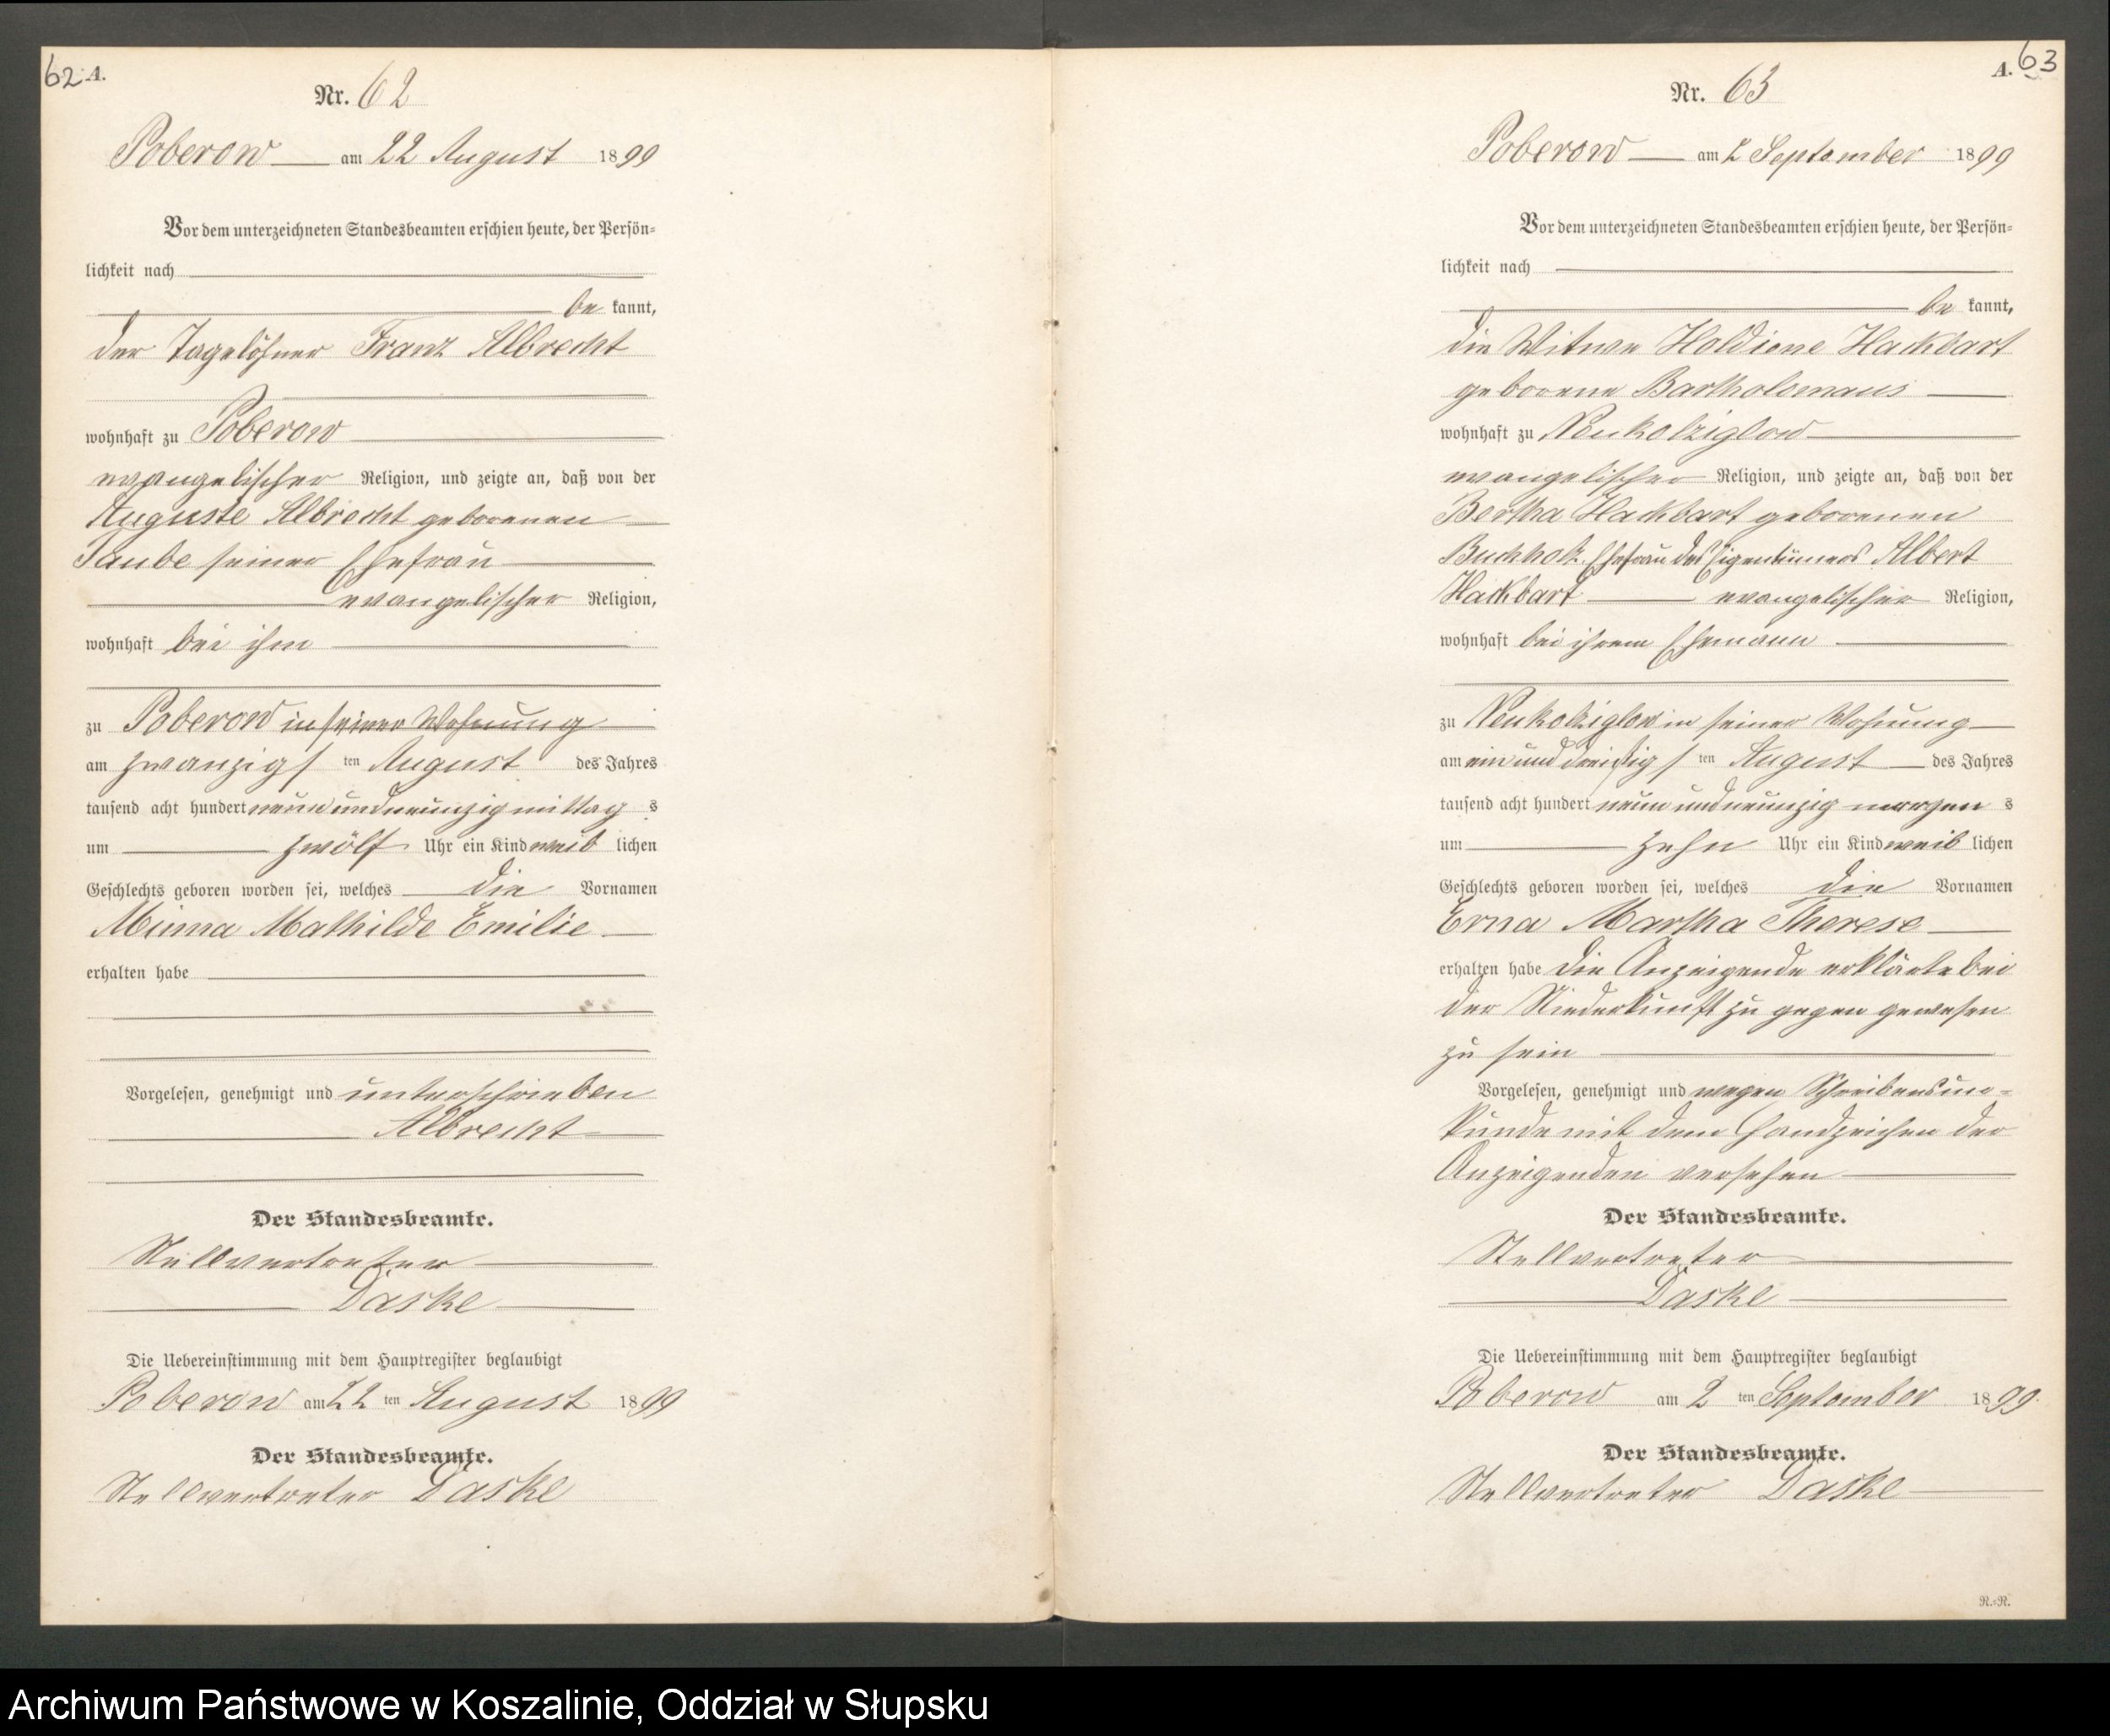 62 A.
Nr. 62
Poberow am 22 August 1899
Vor dem unterzeichneten Standesbeamten erschien heute, der Persön-
lichkeit nach
be kannt,
der Tagelöhner Franz Albrecht
wohnhaft zu Poberow
evangelischer Religion, und zeigte an, daß von der
Auguste Albrecht geborenen
Taube seiner Ehefrau
evangelischer Religion,
wohnhaft bei ihm
zu Poberow in seiner Wohnung
am zwanzigs ten August des Jahres
tausend acht hundert neun und neunzig mittag s
um zwölf Uhr ein Kind weib lichen
Geschlechts geboren worden sei, welches die Vornamen
Minna Mathilde Emilie
erhalten habe
Vorgelesen, genehmigt und unterschrieben
Albrecht
Der Standesbeamte.
Stellvertreter
Daske
Die Uebereinstimmung mit dem Hauptregister beglaubigt
Poberow am 22 ten August 1899
Der Standesbeamte.
Stellvertreter Daske
A. 63
Nr. 63
Poberow am 2 September 1899
Vor dem unterzeichneten Standesbeamten erschien heute, der Persön-
lichkeit nach
be kannt,
die Witwe Holdiene Hackbart
geborene Bartholomaus
wohnhaft zu Neukolziglow
evangelischer Religion, und zeigte an, daß von der
Bertha Hackbart geborenen
Buchholz Ehefrau des Eigentümers Albert
Hackbart evangelischer Religion,
wohnhaft bei ihrem Ehemann
zu Neukolziglow in seiner Wohnung
am ein und dreißigs ten August des Jahres
tausend acht hundert neun und neunzig morgen s
um zehn Uhr ein Kind weib lichen
Geschlechts geboren worden sei, welches die Vornamen
Erna Martha Therese
erhalten habe die Anzeigende erklärte bei
der Niederkunft zu gegen gewesen
zu sein
Vorgelesen, genehmigt und wegen Schreibensun-
kunde mit dem Handzeichen der
Anzeigenden versehen
Der Standesbeamte.
Stellvertreter
Daske
Die Uebereinstimmung mit dem Hauptregister beglaubigt
Poberow am 2 ten September 1899.
Der Standesbeamte.
Stellvertreter Daske
R.=R.
Archiwum Państwowe w Koszalinie, Oddział w Słupsku